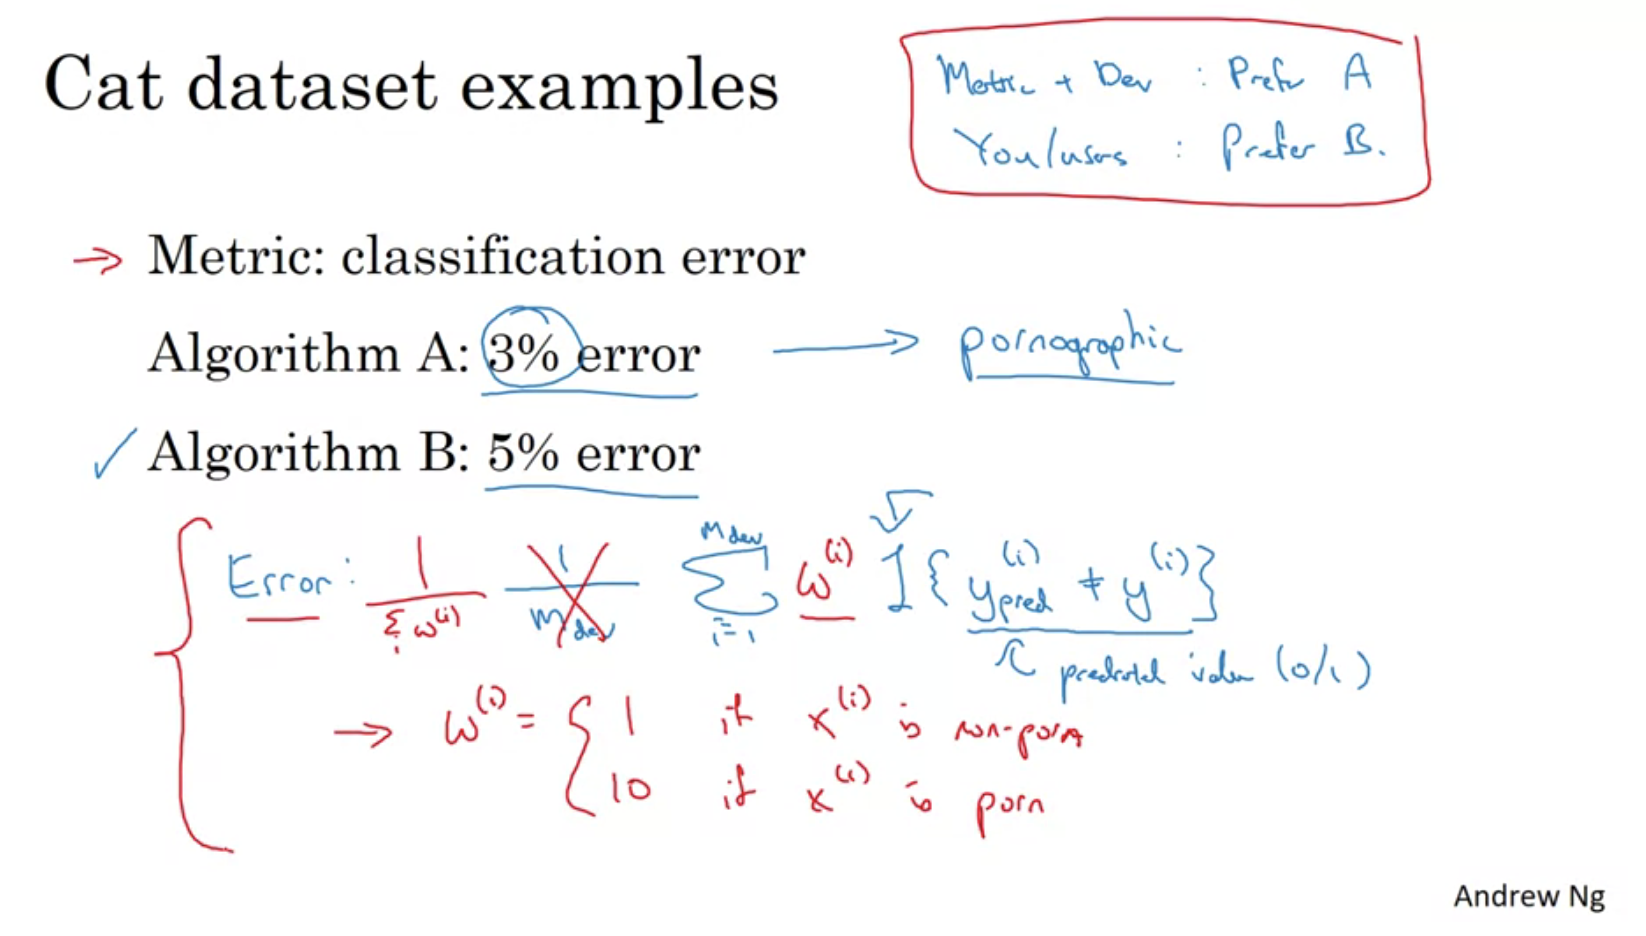 Cat dataset examples
Metric + Dev : Prefer A
You/users : Prefer B.
→ Metric: classification error
Algorithm A: 3% error → pornographic
✓ Algorithm B: 5% error
Error: 1/Σᵢ w⁽ⁱ⁾ 1/m_dev Σ_{i=1}^{m_dev} w⁽ⁱ⁾ 1{y_pred⁽ⁱ⁾ ≠ y⁽ⁱ⁾}
predicted value (0/1)
→ w⁽ⁱ⁾ = { 1 if x⁽ⁱ⁾ is non-porn
10 if x⁽ⁱ⁾ is porn
Andrew Ng